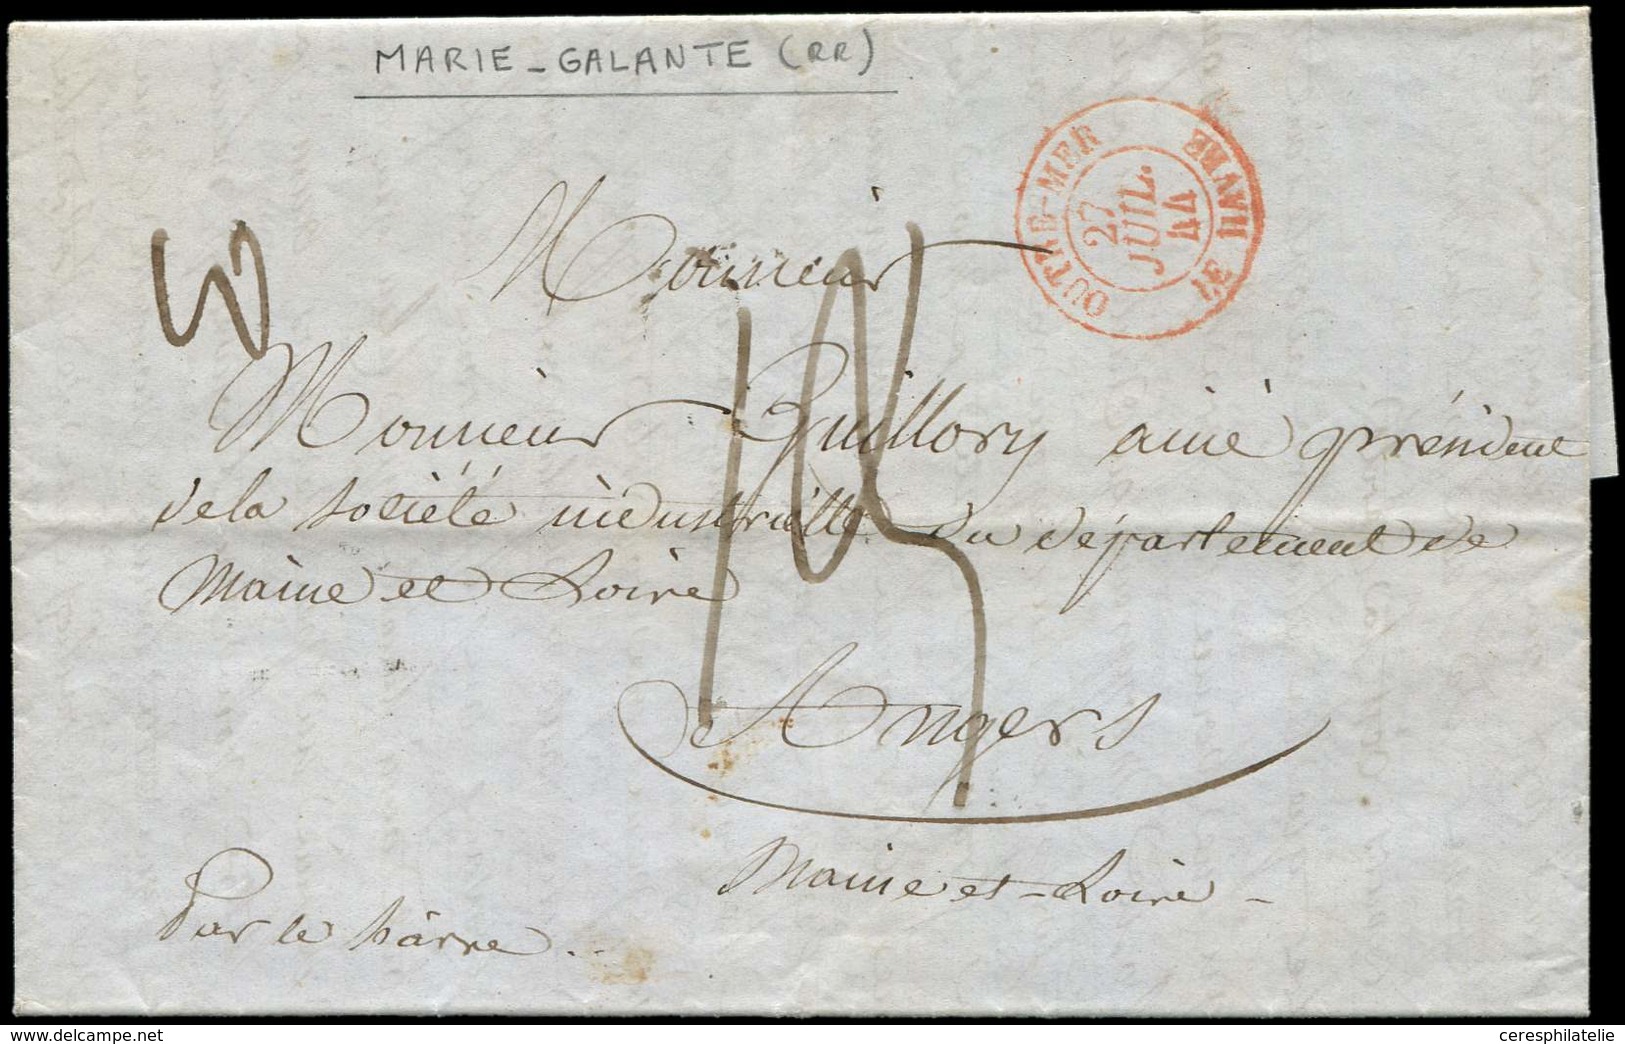 MARIE-GALANTE (RR)
OUTRE-MER LE HAVRE
27
JUIL.
44
Monsieur
Monsieur Guillory ainé président
de la société industrielle du département de
Maine et Loire
Angers
Maine et-Loire-
Par le hâvre
delcampe.net
ceresphilatelie